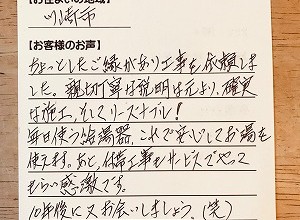 【お住まいの地域】
川崎市
【お客様のお声】
ちょっとしたご縁があり工事を依頼しま
した。親切丁寧な説明は元より、確実
な施工、そしてリーズナブル!
毎日使う給湯器、これで安心してお湯を
使えます。あと、付帯工事もサービスでやって
もらい感激です。
10年後に又お会いしましょう。(笑)